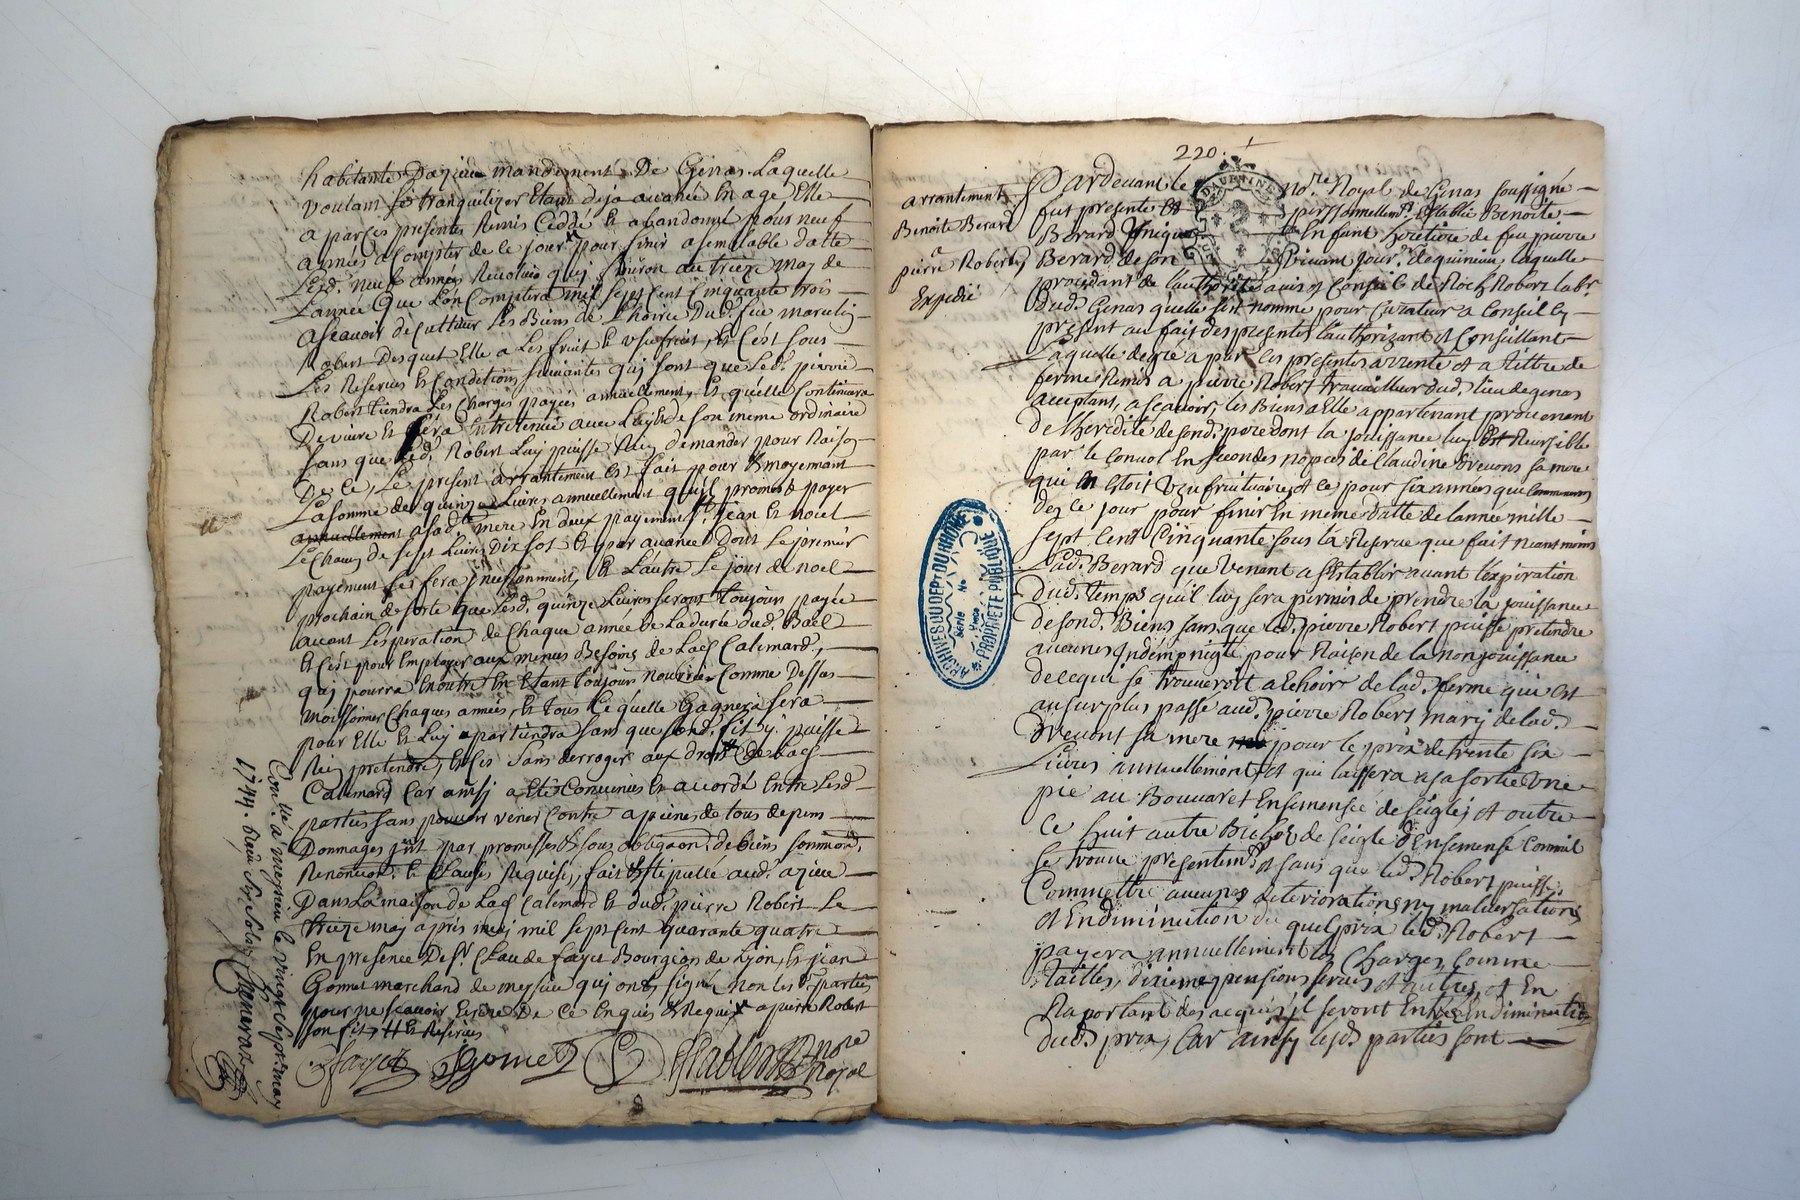 habitante D'azieu mandement De Genas Laquelle
voulant se tranquilizer Etant deja avancée En age Elle
a par Ces presentes Remis Ceddé et abandonné pour neuf
années a Compter de Ce jour pour finir a semblable datte
Lesd. neuf années Revolües quj finiron au treize may de
L'année Que L'on Comptera mil sept Cent Cinquante trois
ascavoir de Cultiver Les Biens de L'hoirie dud. feu
Robert Desquel Elle a Les fruit et usufruit, et C'est sous
Les Reserves et Conditions suivantes quj sont que Led. pierre
Robert tiendra Les Charges payées annuellement, et qu'elle Continuera
De vivre et sera Entretenüe avec Luy de son meme ordinaire
sans que Led. Robert Luy puisse Rien demander pour Raison
De Ce, Le present arrantement est fait pour et moyennant
La somme de quinze Livres annuellement qu'il promet payer
annuellement a sad. mere En deux payements, st jean et noel
Le Chacun de sept Livres Dix sol et par avance Dont Le premier
payement se fera et L'autre Le jour de noel
prochain de sorte que Lesd. quinze Livres seront toujours payée
avant L'esperation de Chaque année de La durée dud. Bael
et C'est pour Employer aux menus Besoins de Lad. Calemard,
quj pourra En outre En Etant toujours nourrie Comme Dessus
moissonner Chaques années, et tous Ce qu'elle Gagnera sera
pour Elle et Luy apartiendra sans que sond. fit y puisse
Rien pretendre, et Ces sans derroger aux droits de Lad.
Calemard Car ainsj a Eté Convenües et accordé Entre Lesd.
parties sans pouvoir venir Contre a peines de tous depens
Dommages par promesses et sous obligaon. de biens
Renonciaon. et Clause Requise, fait et stipullé aud. azieu
Dans La maison de Lad. Calemard et dud. pierre Robert Le
treize may après midj mil sept Cent quarante quatre
En presence De sr. Claude fayet Bourgeois de Lyon, et jean
Gomet marchand de meysieu quj ont signé, non Les parties
pour ne scavoir Ecrire De Ce Enquis et Requis a pierre Robert
son fit, et Reserves
fayet jgomet nore
Royal
Con.lle a meysieu le vingt sept may
1744. Reçu
220.
DAUPHINE
arrentement
Benoite Berard
a
pierre Robert
Expedié
Pardevant le no.re Royal de Genas soussigné
fut presente et personnellem.t Establie Benoite
Berard Unique Enfant heretiere de feu pierre
Berard de son vivant jour. de quineu, laquelle
procedant de l'authorité avis et Conseil de Roch Robert labr.
dud. Genas qu'elle s'est nommé pour Curateur a Conseil Cy
present au fait des presentes l'authorizant et Conseillant
Laquelle de gré a par les presentes arrenté et a tiltre de
ferme Remis a pierre Robert travailleur dud. lieu de genas
acceptant, ascavoir, les Biens a Elle appartenant provenant
de l'heredité de sond. pere dont la jouissance luy Est Reversible
par le Convol En secondes nopces de Claudine Drevons sa mere
qui En Etoit Uzufruituaire, et ce pour six années que Commences
dez le jour pour finir En meme datte de l'année mille
sept Cent Cinquante sous la Reserve que fait neantmoins
Lad. Berard que venant a s'Establir avant l'expiration
dud. temps qu'il luy sera permis de prendre la jouissance
de sond. Biens sans que led. pierre Robert puisse pretendre
aucunes Indempnité pour Raison de la non jouissance
de ce qui se trouveroit a Echoir de lad. ferme qui est
au surplus passé aud. pierre Robert marj de lad.
Drevont sa mere pour le prix de trente six
Livres annuellement, et qui laissera a sa sortie Une
pie au Bouvaret Ensemensée de seigle, et outre
Ce huit autre Bichet de seigle Ensemensé Commil
se trouve presentem.t et sans que led. Robert puisse
Commettre aucunes deteriorations ny malversations
et En diminution du quel prix led. Robert
payera annuellement les Charges, Comme
tailles, dixieme, pensions servis et autres, et En
Raportant des acquis il seront Entrés En diminution
dud. prix, Car ainsy lesd. parties sont
ARCHIVES DU DEPT DU RHONE
Série No
PROPRIETE PUBLIQUE